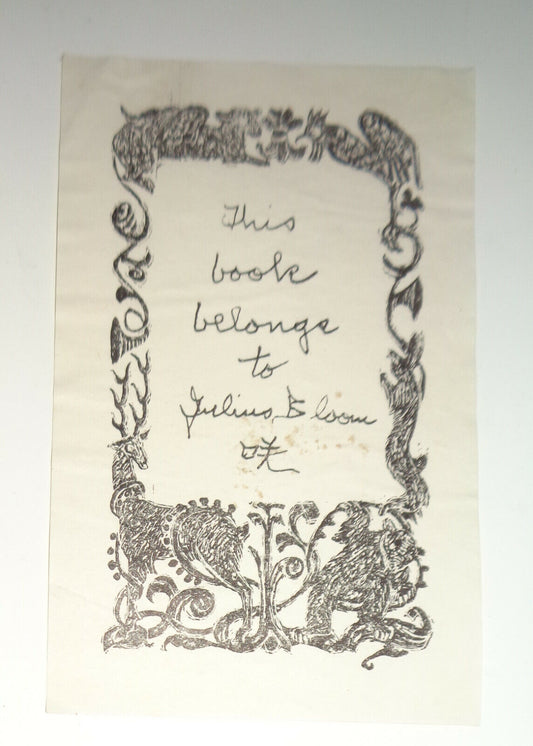 This
book
belongs
to
Julius Bloom
咲